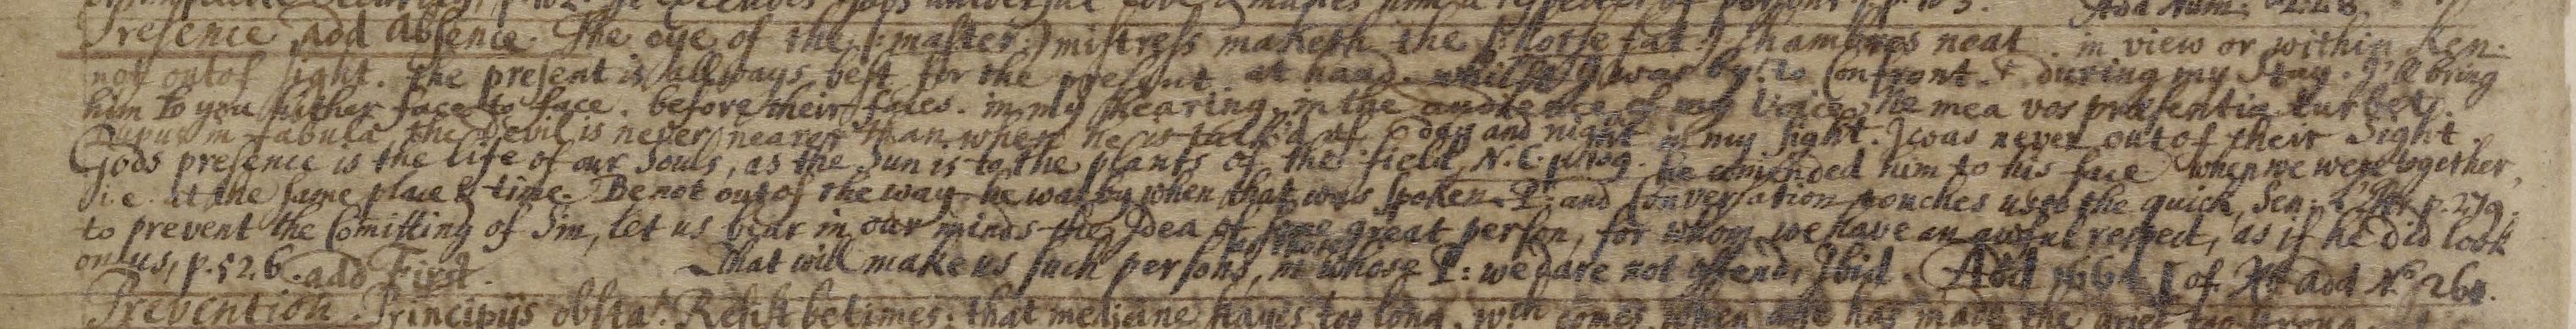 Presence add absence. The eye of the [: master :] mistress maketh the [: horse fat :] Chambres neat. in view or within Ken.
not out of sight. the present is allways best for the present at hand. whilst I was by. to Confront. + during my Stay. I'le bring
him to you hither face to face. before their faces. in my hearing. in the audience of my Voice. Ne mea vos præsentia turbet.
Lupus in fabula the Devil is never nearer than when he is talk'd of. day and night in my sight. I was never out of their Sight.
Gods presence is the life of our Souls, as the Sun is to the plants of the field, N.C. he comended him to his face when we were together,
i.e. at the same place & time. Be not out of the way he was by when that was spoken P: and Conversation touches us to the quick, Sen: p. 279.
to prevent the Comitting of Sin, let us bear in our minds the Idea of some great person, for whom we have an awful respect, as if he did look
on us, p. 526. add First. That will make us such persons, in whose P: we dare not offend, Ibid. Add 1664 [of Xt add No 261.
Prevention. Principijs obsta. Resist betimes: that medicine stayes too long, wch comes when age has made the grief too strong